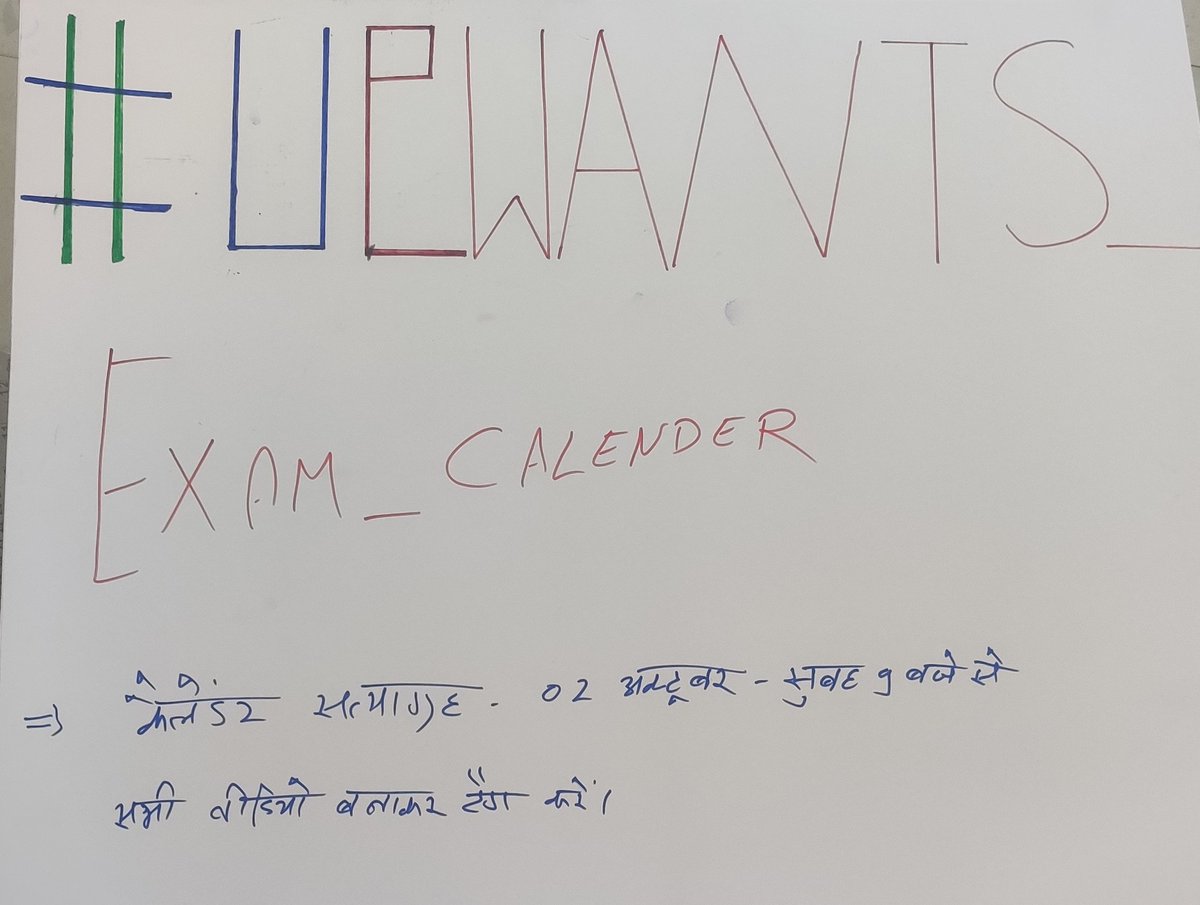 #UPWANTS_
EXAM_CALENDER
⇒ कैलेंडर सत्याग्रह - 02 अक्टूबर - सुबह 9 बजे से
सभी वीडियो बनाकर टैग करें।